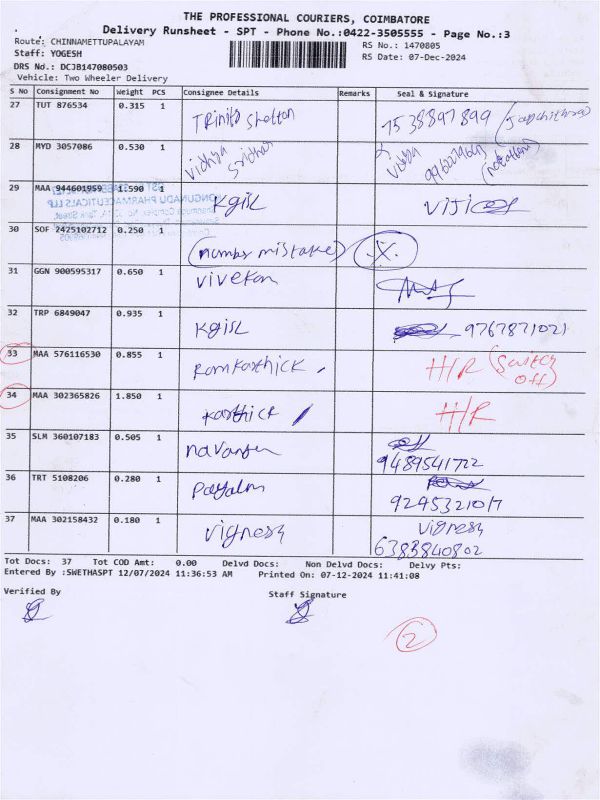 THE PROFESSIONAL COURIERS, COIMBATORE
Delivery Runsheet - SPT - Phone No.:0422-3505555 - Page No.:3
Route: CHINNAMETTUPALAYAM
RS No.: 1470805
Staff: YOGESH
RS Date: 07-Dec-2024
DRS No.: DCJB147080503
Vehicle: Two Wheeler Delivery
S No Consignment No Weight PCS Consignee Details Remarks Seal & Signature
27 TUT 876534 0.315 1 Trinita Shelton 7538897899
28 MYD 3057086 0.530 1 Vidhya Sridhar Vidhya
29 MAA 944601959 1.590 1 KGISL VIJI
30 SOF 2425102712 0.250 1 (number mistake) X
31 GGN 900595317 0.650 1 Vivekan
32 TRP 6849047 0.935 1 KGISL 9767871021
33 MAA 576116530 0.855 1 Ramkarthick H/R (Switch Off)
34 MAA 302365826 1.850 1 Karthick H/R
35 SLM 360107183 0.505 1 9489541722
36 TRT 5108206 0.280 1 Payalm 9245321017
37 MAA 302158432 0.180 1 Vignesh Vignesh
6383840802
Tot Docs: 37 Tot COD Amt: 0.00 Delvd Docs: Non Delvd Docs: Delvy Pts:
Entered By :SWETHASPT 12/07/2024 11:36:53 AM Printed On: 07-12-2024 11:41:08
Verified By Staff Signature
2